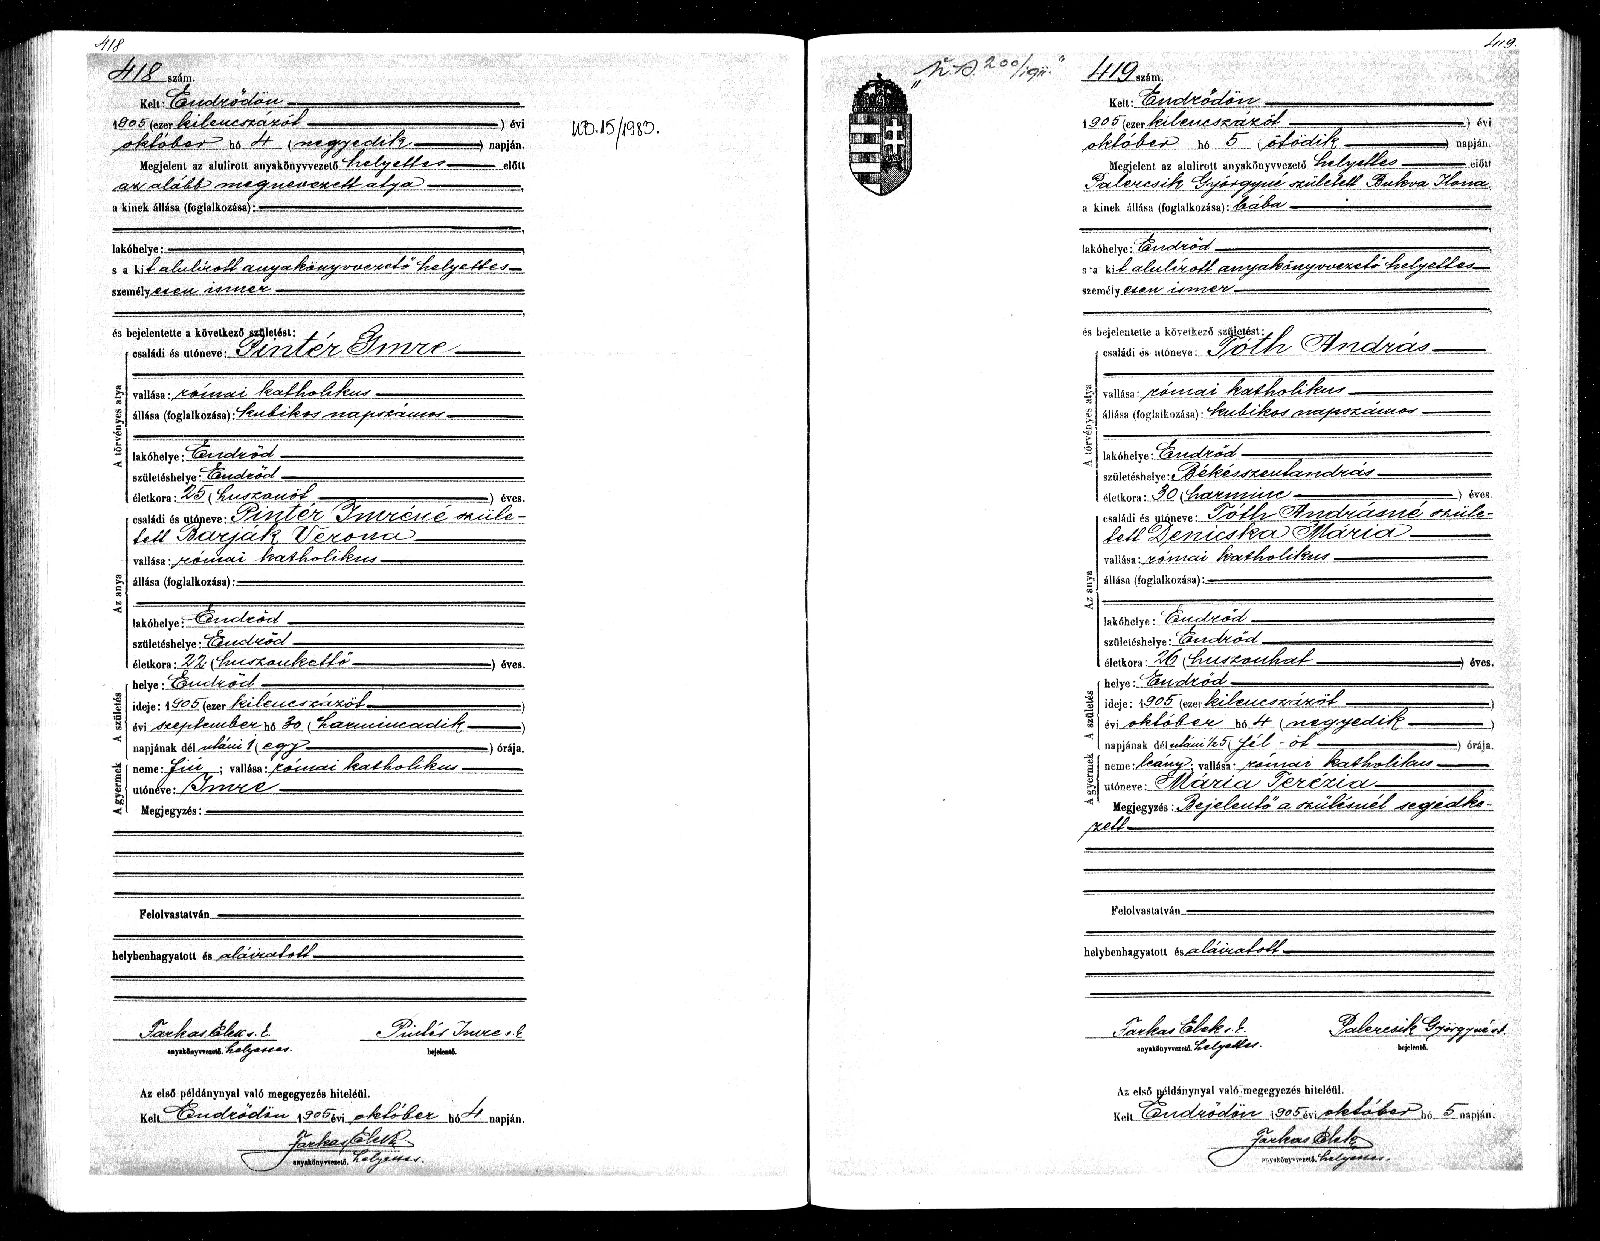 418
418 szám.
Kelt: Endrődön
1905 (ezer kilencszázöt) évi
október hó 4 (negyedik) napján.
Megjelent az alulirott anyakönyvvezető helyettes előtt
az alább megnevezett atya
a kinek állása (foglalkozása):
lakóhelye:
s a kit alulírott anyakönyvvezető helyettes
személyesen ismer
és bejelentette a következő születést:
A törvényes atya
családi és utóneve: Pintér Imre
vallása: római katholikus
állása (foglalkozása): kubikos napszámos
lakóhelye: Endrőd
születéshelye: Endrőd
életkora: 25 (huszonöt) éves.
Az anya
családi és utóneve: Pintér Imréné szüle-
tett Barják Verona
vallása: római katholikus
állása (foglalkozása):
lakóhelye: Endrőd
születéshelye: Endrőd
életkora: 22 (huszonkettő) éves.
A születés
helye: Endrőd
ideje: 1905 (ezer kilencszázöt)
évi szeptember hó 30 (harmincadik)
napjának dél utáni 1 (egy) órája.
A gyermek
neme: fiú; vallása: római katholikus
utóneve: Imre
Megjegyzés:
Felolvastatván
helybenhagyatott és aláiratott
Farkas Elek s. k. Pintér Imre s. k.
anyakönyvvezető. helyettes. bejelentő.
Az első példánynyal való megegyezés hiteléül.
Kelt Endrődön 1905 évi október hó 4 napján.
Farkas Elek
anyakönyvvezető. helyettes.
15/1983.
419.
419 szám.
Kelt: Endrődön
1905 (ezer kilencszázöt) évi
október hó 5 (ötödik) napján.
Megjelent az alulirott anyakönyvvezető helyettes előtt
Palercsik Györgyné született Bukva Ilona
a kinek állása (foglalkozása): bába
lakóhelye: Endrőd
s a kit alulírott anyakönyvvezető helyettes
személyesen ismer
és bejelentette a következő születést:
A törvényes atya
családi és utóneve: Tóth András
vallása: római katholikus
állása (foglalkozása): kubikos napszámos
lakóhelye: Endrőd
születéshelye: Békésszentandrás
életkora: 30 (harminc) éves.
Az anya
családi és utóneve: Tóth Andrásné szüle-
tett Denicska Mária
vallása: római katholikus
állása (foglalkozása):
lakóhelye: Endrőd
születéshelye: Endrőd
életkora: 26 (huszonhat) éves.
A születés
helye: Endrőd
ideje: 1905 (ezer kilencszázöt)
évi október hó 4 (negyedik)
napjának dél utáni 1/2 5 (fél-öt) órája.
A gyermek
neme: leány; vallása: római katholikus
utóneve: Mária Terézia
Megjegyzés: Bejelentő a szülésnél segédke-
zett
Felolvastatván
helybenhagyatott és aláiratott
Farkas Elek s. k. Palercsik Györgyné s. k.
anyakönyvvezető. helyettes. bejelentő.
Az első példánynyal való megegyezés hiteléül.
Kelt Endrődön 1905 évi október hó 5 napján.
Farkas Elek
anyakönyvvezető. helyettes.